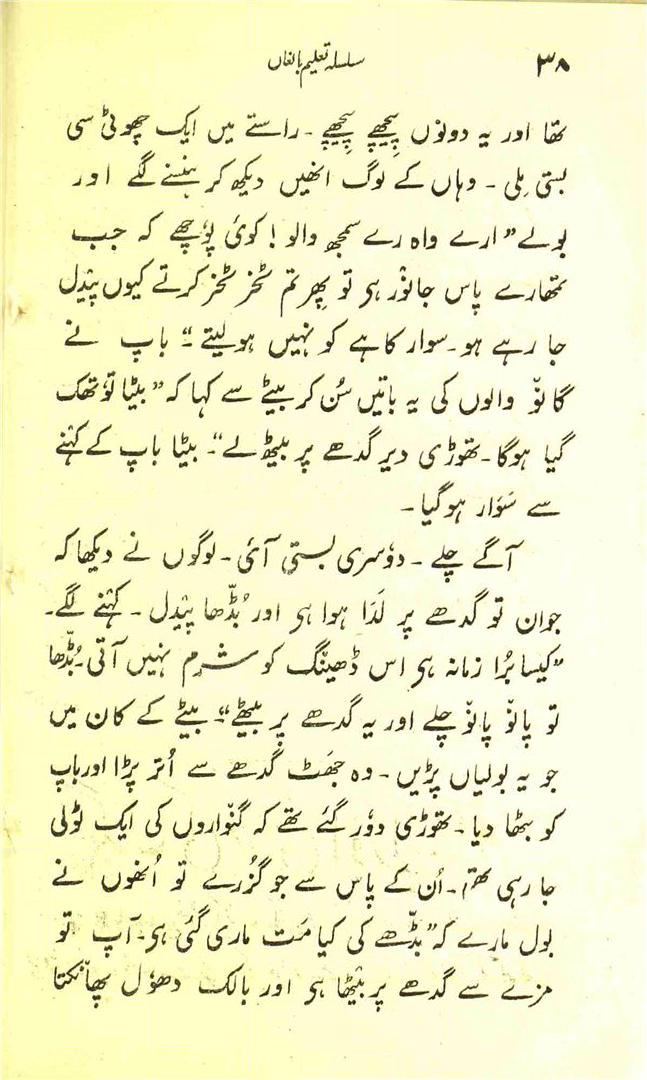 ۳۸ سلسلہ تعلیم بالغاں
تھا اور یہ دونوں پیچھے پیچھے ۔ راستے میں ایک چھوٹی سی
بستی مِلی ۔ وہاں کے لوگ انھیں دیکھ کر ہنسنے لگے اور
بولے ”ارے واہ رے سمجھ والو ! کوئی پوٗچھے کہ جب
تمھارے پاس جانْور ہی تو پھِر تم ٹخز ٹخز کرتے کیوں پَیدل
جا رہے ہو ۔ سوار کاہے کو نہیں ہو لیتے“۔ باپ نے
گانوٚ والوں کی یہ باتیں سُن کر بیٹے سے کہا کہ ”بیٹا توٗ تھک
گیا ہوگا ۔ تھوڑی دیر گدھے پر بیٹھ لے“۔ بیٹا باپ کے کہنے
سے سَوَار ہو گیا ۔
آگے چلے ۔ دوٗسری بستی آئی ۔ لوگوں نے دیکھا کہ
جوان تو گدھے پر لَدَا ہوا ہی اور بُڈّھا پَیدل ۔ کہنے لگے ۔
”کیسا بُرا زمانہ ہی اس ڈھینگ کو شرم نہیں آتی ۔ بُڈّھا
تو پانوٚ پانوٚ چلے اور یہ گدھے پر بیٹھے“۔ بیٹے کے کان میں
جو یہ بولیاں پڑیں ۔ وہ جھَٹ گدھے سے اُتر پڑا اور باپ
کو بٹھا دیا ۔ تھوڑی دوٗر گئے تھے کہ گنْواروں کی ایک ٹولی
جا رہی تھی ۔ اُن کے پاس سے جو گُزرے تو اُنھوں نے
بول مارے کہ ”بڈّھے کی کیا مَت ماری گئی ہی ۔ آپ تو
مزے سے گدھے پر بَیٹھا ہی اور بالک دھوٗل پھانْکتا